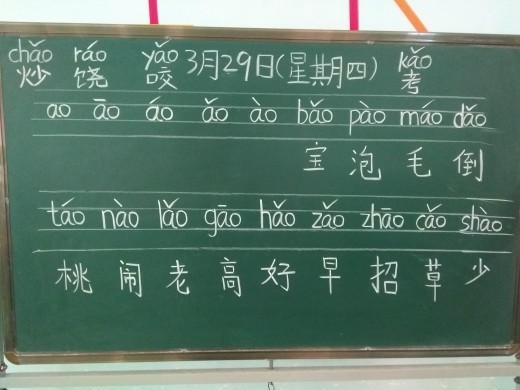 chǎo ráo yǎo kǎo
炒 饶 咬 3月29日(星期四) 考
ao āo áo ǎo ào bǎo pào máo dǎo
宝 泡 毛 倒
táo nào lǎo gāo hǎo zǎo zhāo cǎo shào
桃 闹 老 高 好 早 招 草 少